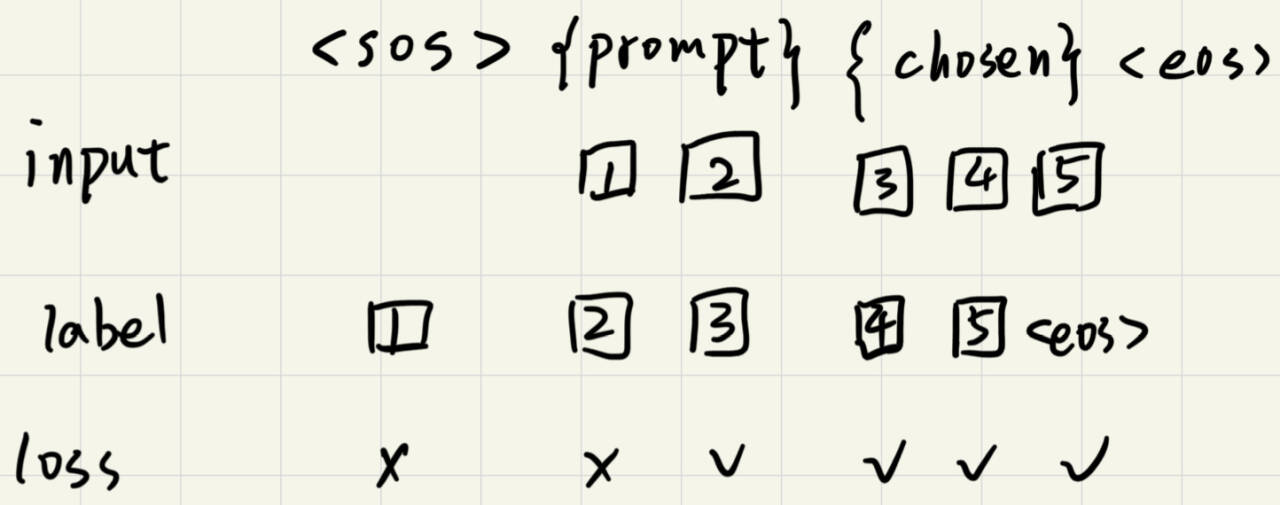 <sos> {prompt} {chosen} <eos>
input 1 2 3 4 5
label 1 2 3 4 5 <eos>
loss x x v v v v